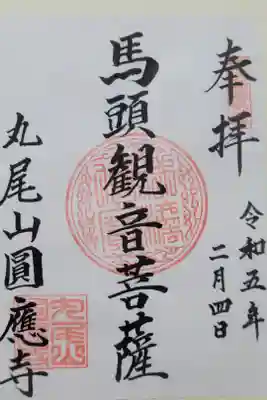 奉拝
令和五年
二月四日
馬頭観音菩薩
丸尾山圓應寺